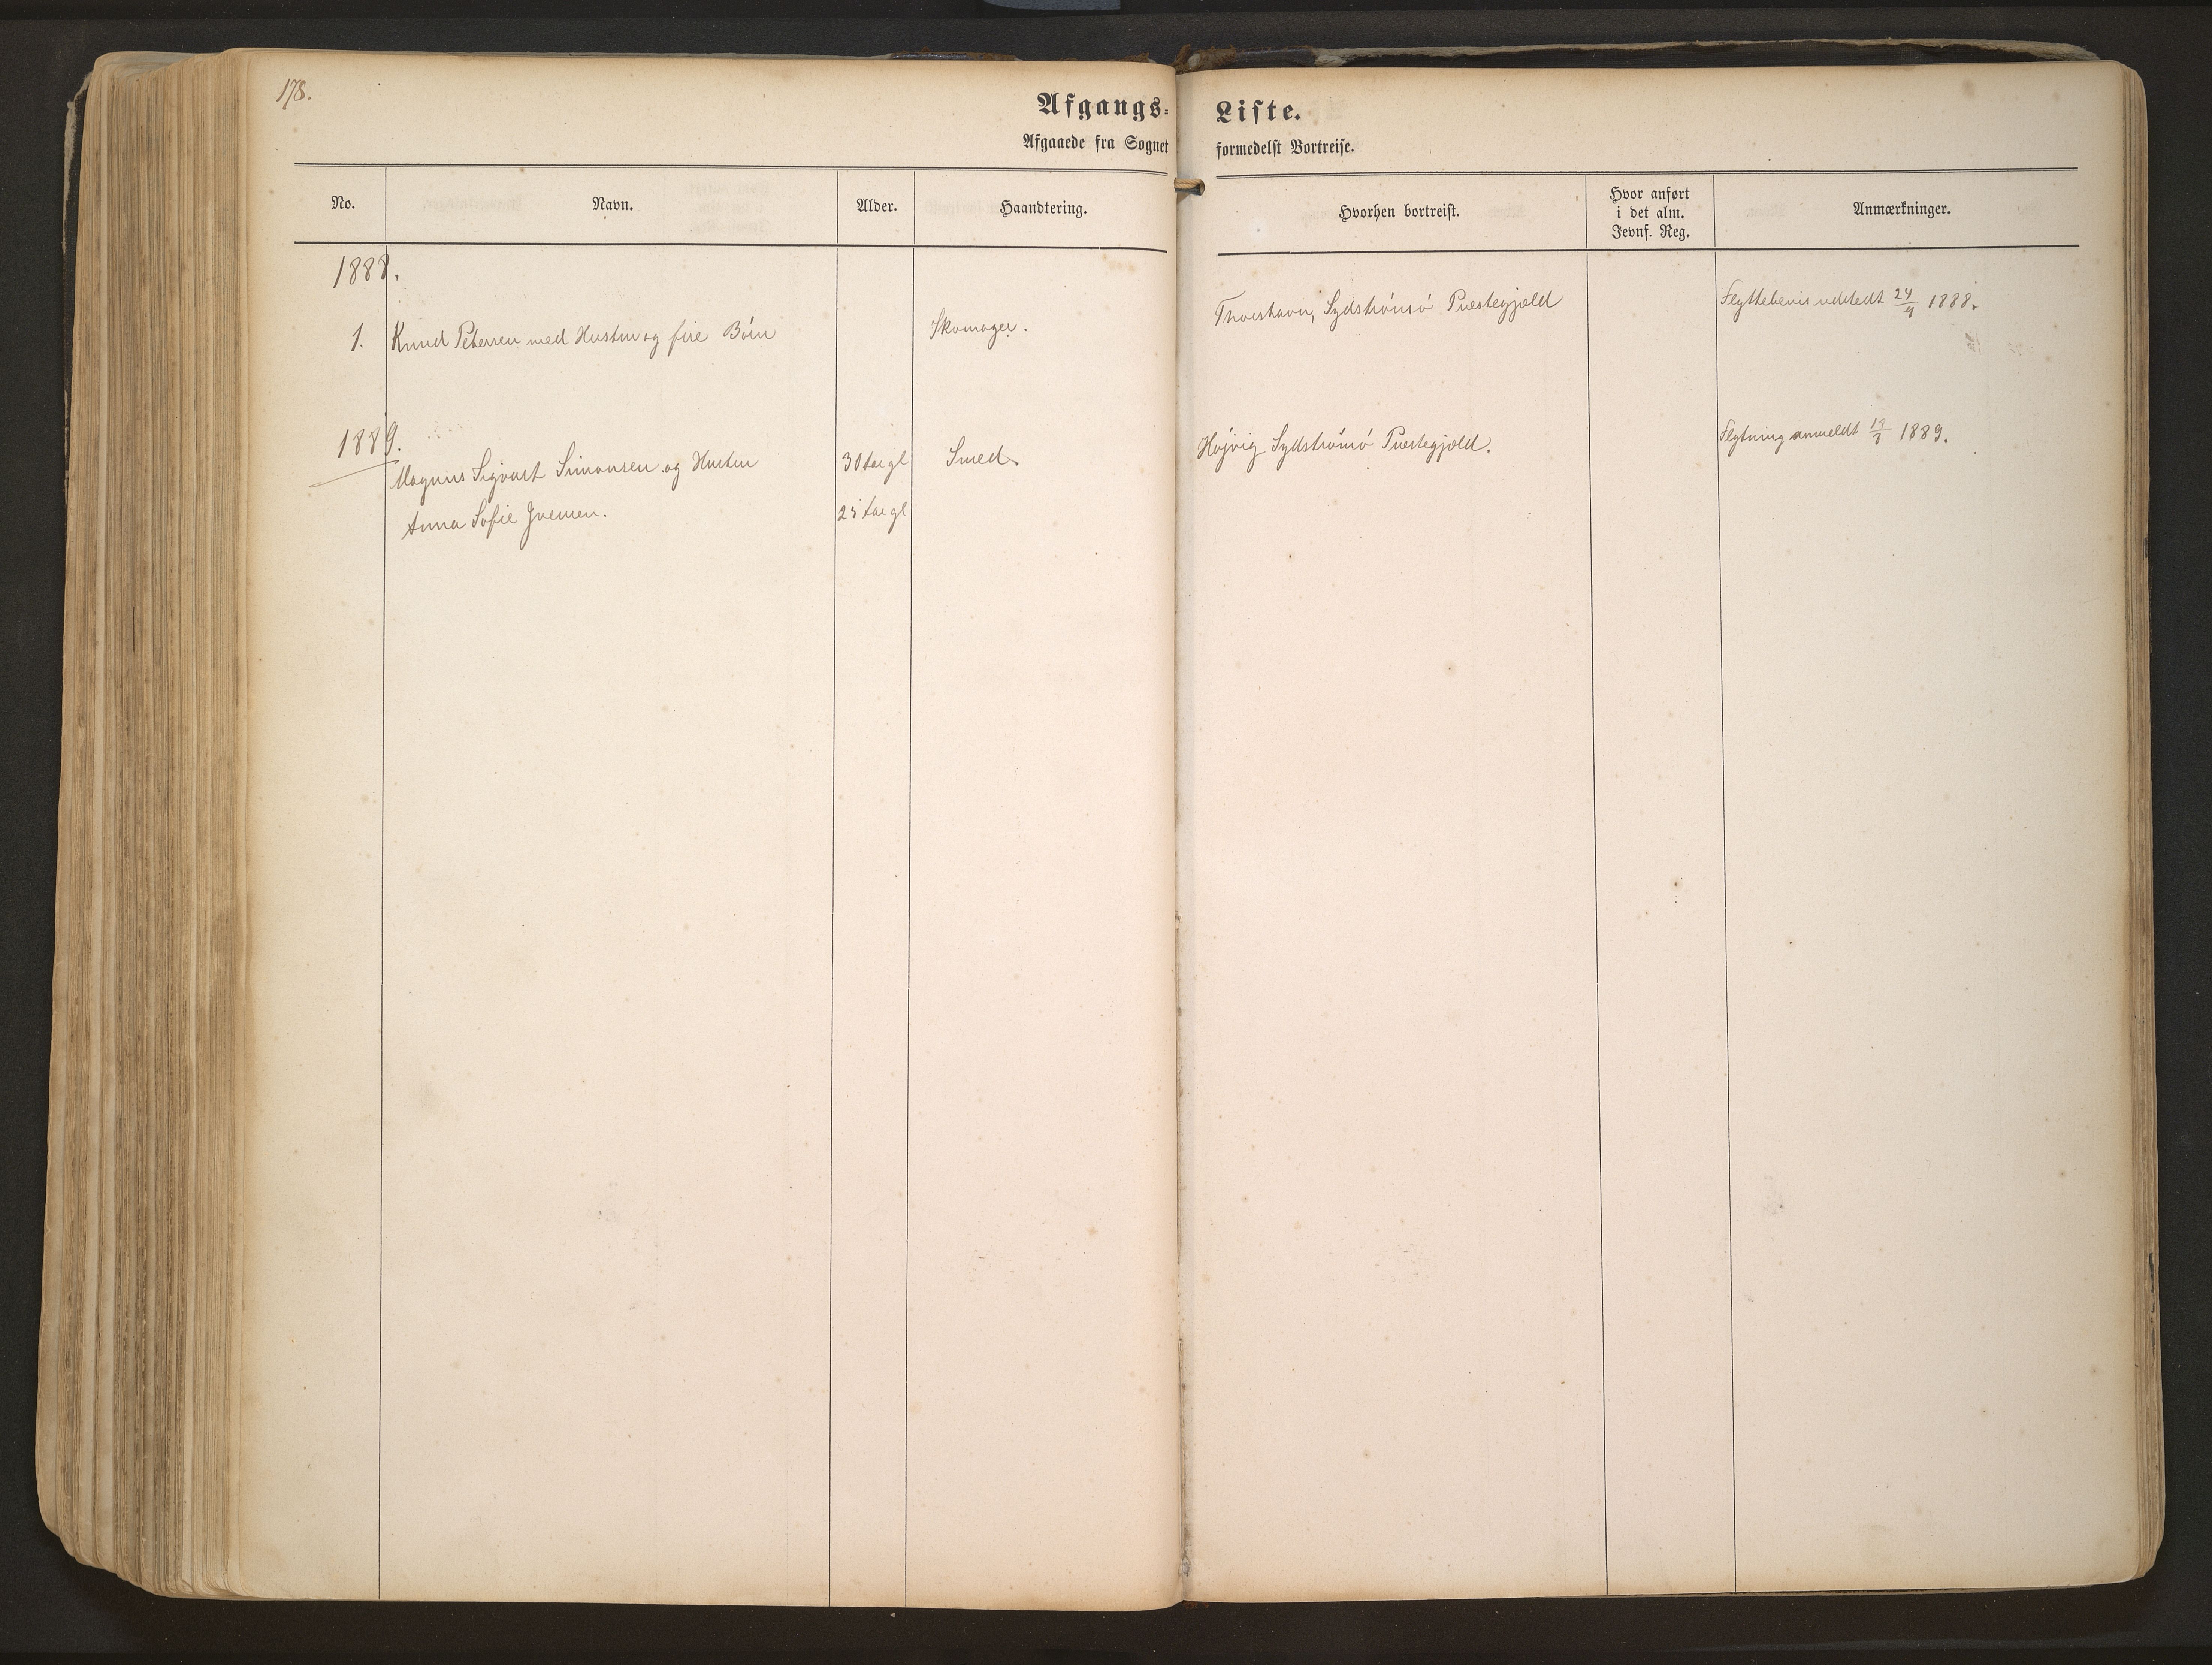 178.
Afgangs-Liste.
Afgaaede fra Sognet formedelst Bortreise.
No. Navn. Alder. Haandtering. Hvorhen bortreist. Hvor anført i det alm. Jevnf. Reg. Anmærkninger.
1888.
1. Knud Petersen med Hustru og fire Börn Skomager. Thorshavn, Sydströmsö Præstegjæld Flyttebevis udstedt 24/9 1888.
1889.
Magnus Sigvart Simonsen og Hustru 30 Aar gl Smed. Højvig Sydströmsö Præstegjæld. Flytning anmeldt 1889.
Anna Sofie Joensen. 25 Aar gl